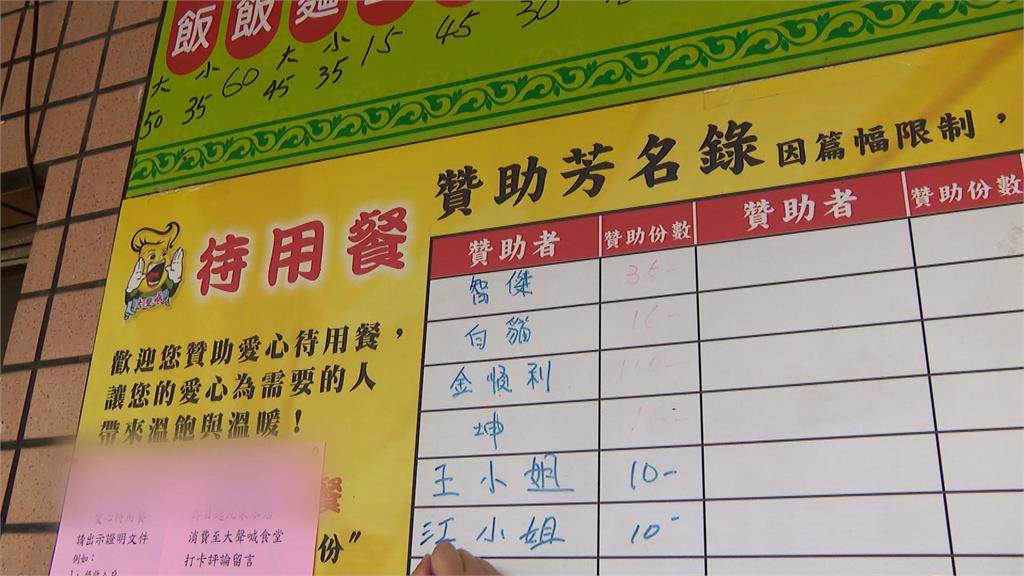 飯 飯 麵
大 小 大 小
50 35 60 45 35 15 45 30
贊助芳名錄 因篇幅限制，
待用餐
大聲喊
歡迎您贊助愛心待用餐，
讓您的愛心為需要的人
帶來溫飽與溫暖！
餐
份"
贊助者 贊助份數 贊助者 贊助份數
智傑 35-
白貓 16-
金順利 110-
坤 16-
王小姐 10-
江小姐 10-
愛心待用餐
請出示證明文件
例如：
消費至大聲喊食堂
打卡評論留言